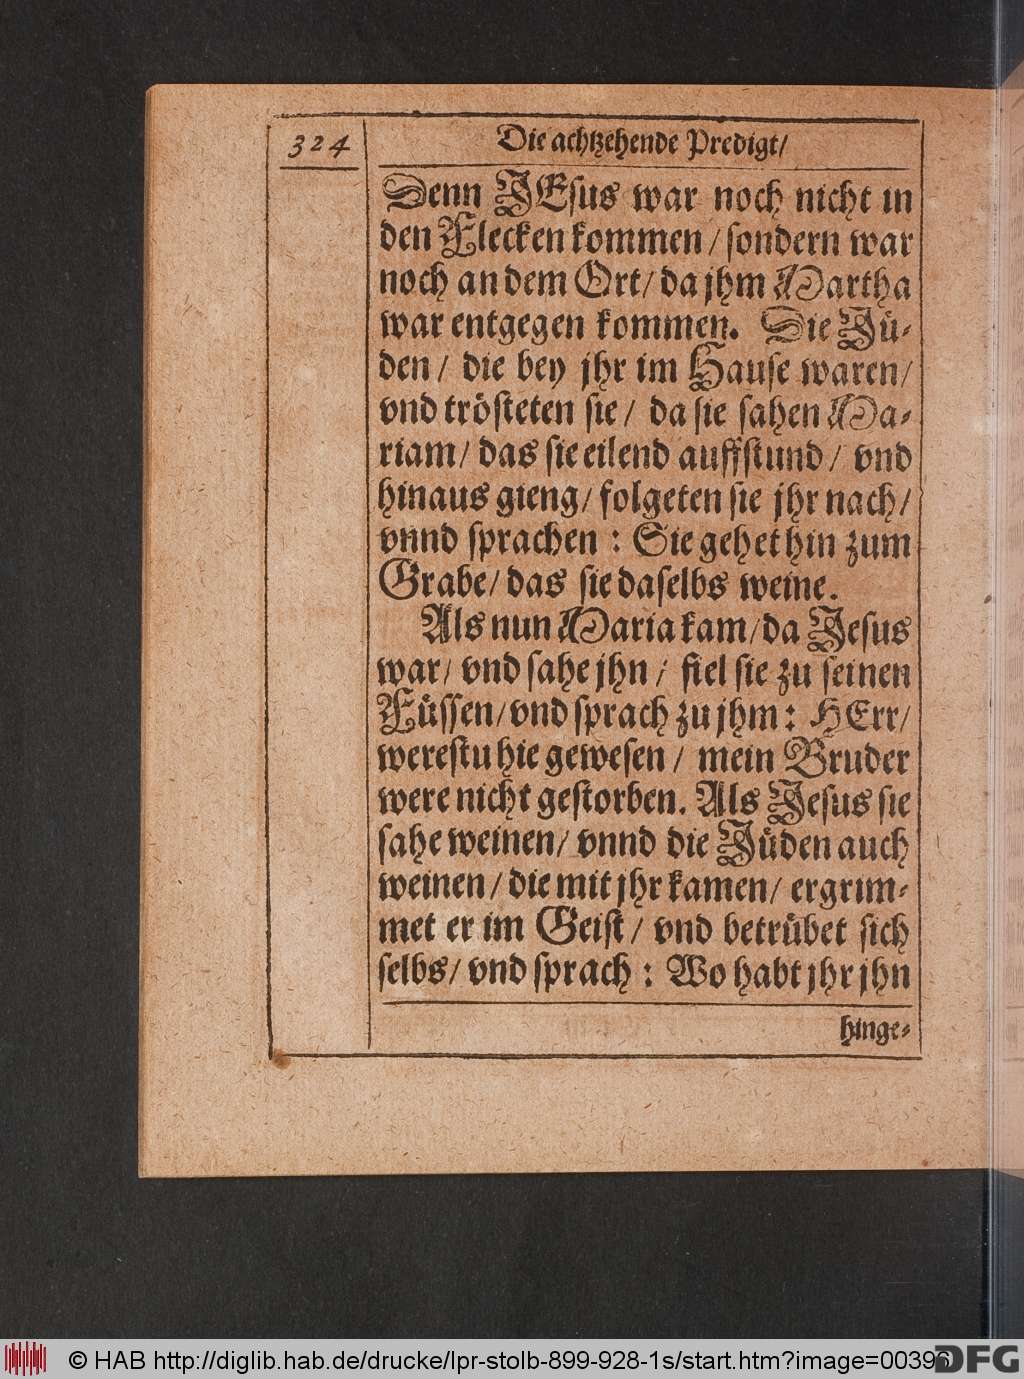 324
Die achtzehende Predigt/
Denn JEsus war noch nicht in
den Flecken kommen/ sondern war
noch an dem Ort/ da jhm Martha
war entgegen kommen. Die Jü-
den/ die bey jhr im Hause waren/
vnd trösteten sie/ da sie sahen Ma-
riam/ das sie eilend auffstund/ vnd
hinaus gieng/ folgeten sie jhr nach/
vnnd sprachen: Sie gehet hin zum
Grabe/ das sie daselbs weine.
Als nun Maria kam/ da Jesus
war/ vnd sahe jhn/ fiel sie zu seinen
Füssen/ vnd sprach zu jhm: HErr/
werestu hie gewesen/ mein Bruder
were nicht gestorben. Als Jesus sie
sahe weinen/ vnnd die Jüden auch
weinen/ die mit jhr kamen/ ergrim-
met er im Geist/ vnd betrübet sich
selbs/ vnd sprach: Wo habt jhr jhn
hinge-
© HAB http://diglib.hab.de/drucke/lpr-stolb-899-928-1s/start.htm?image=00396
DFG